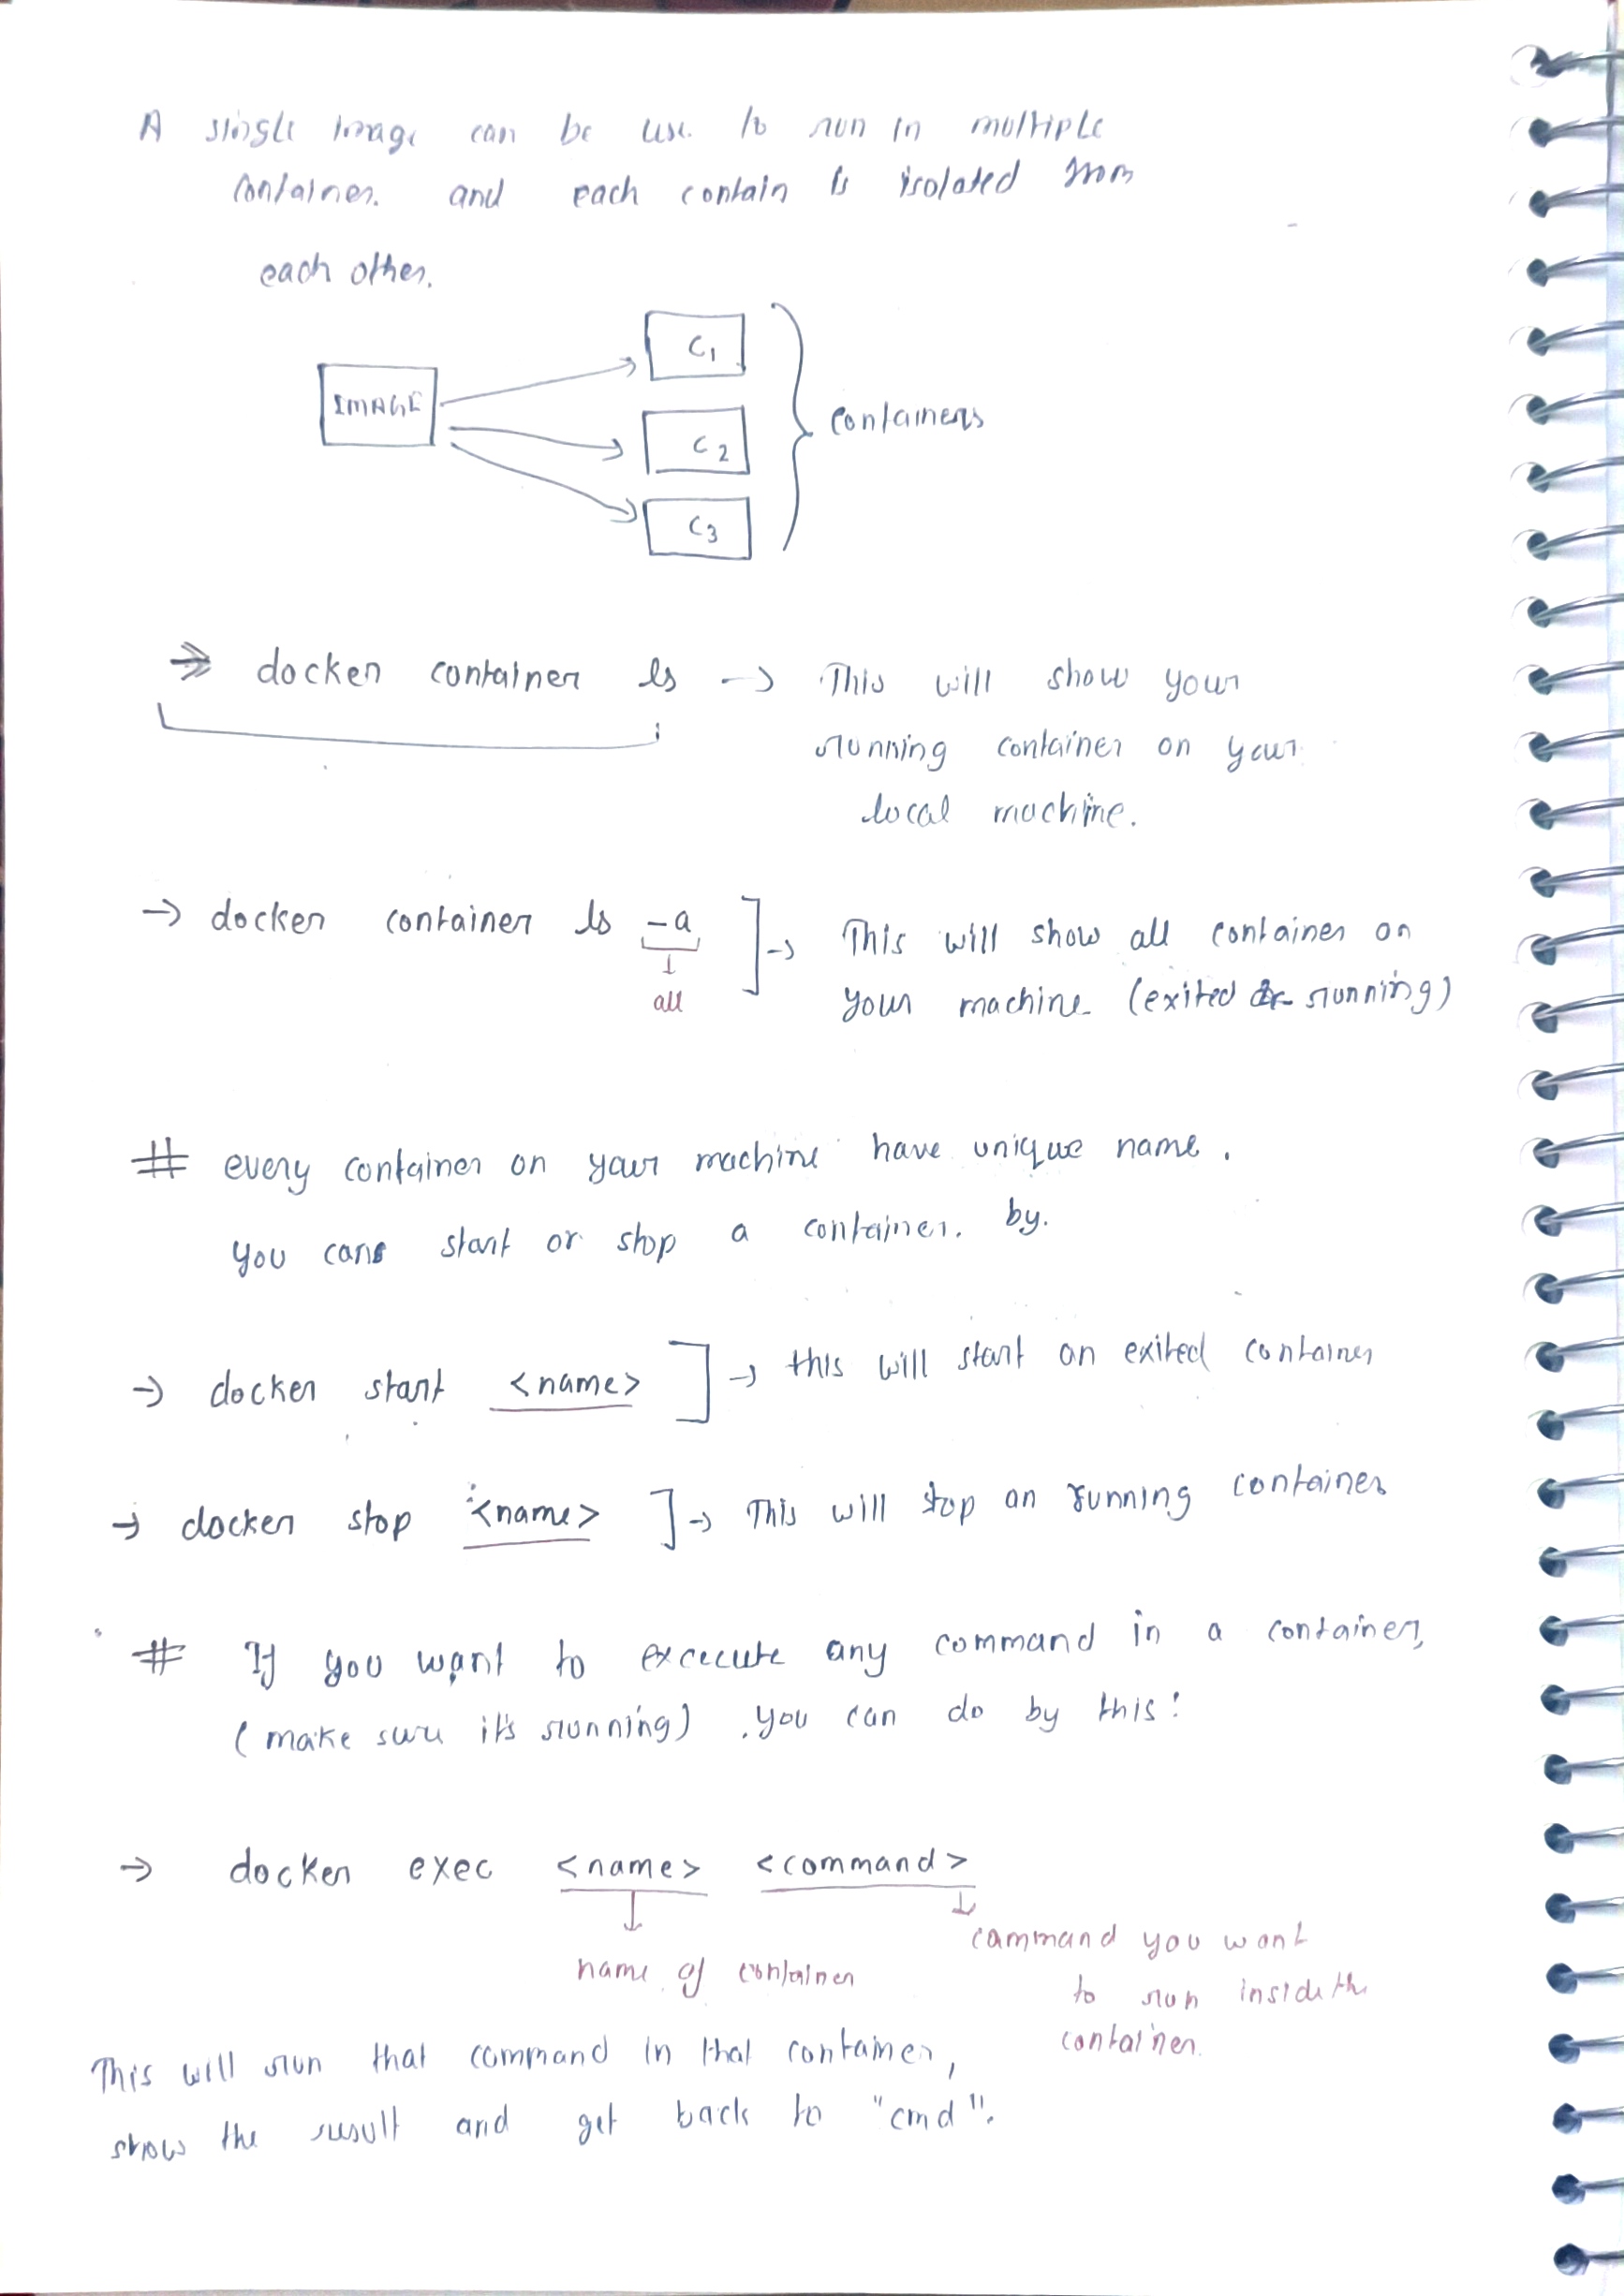 A single image can be use to run in multiple
container. and each contain is isolated from
each other.
IMAGE
C1
C2
C3
containers
docker container ls → This will show your
running container on your
local machine.
→ docker container ls -a → This will show all container on
all
your machine (exited or running)
# every container on your machine have unique name.
you can start or stop a container. by.
→ docker start <name> → this will start an exited container
→ docker stop <name> → This will stop an running container
# If you want to excecute any command in a container,
(make sure it's running) . you can do by this:
→ docker exec <name> <command>
name of container
command you want
to run inside the
container.
This will run that command in that container,
show the result and get back to "cmd".